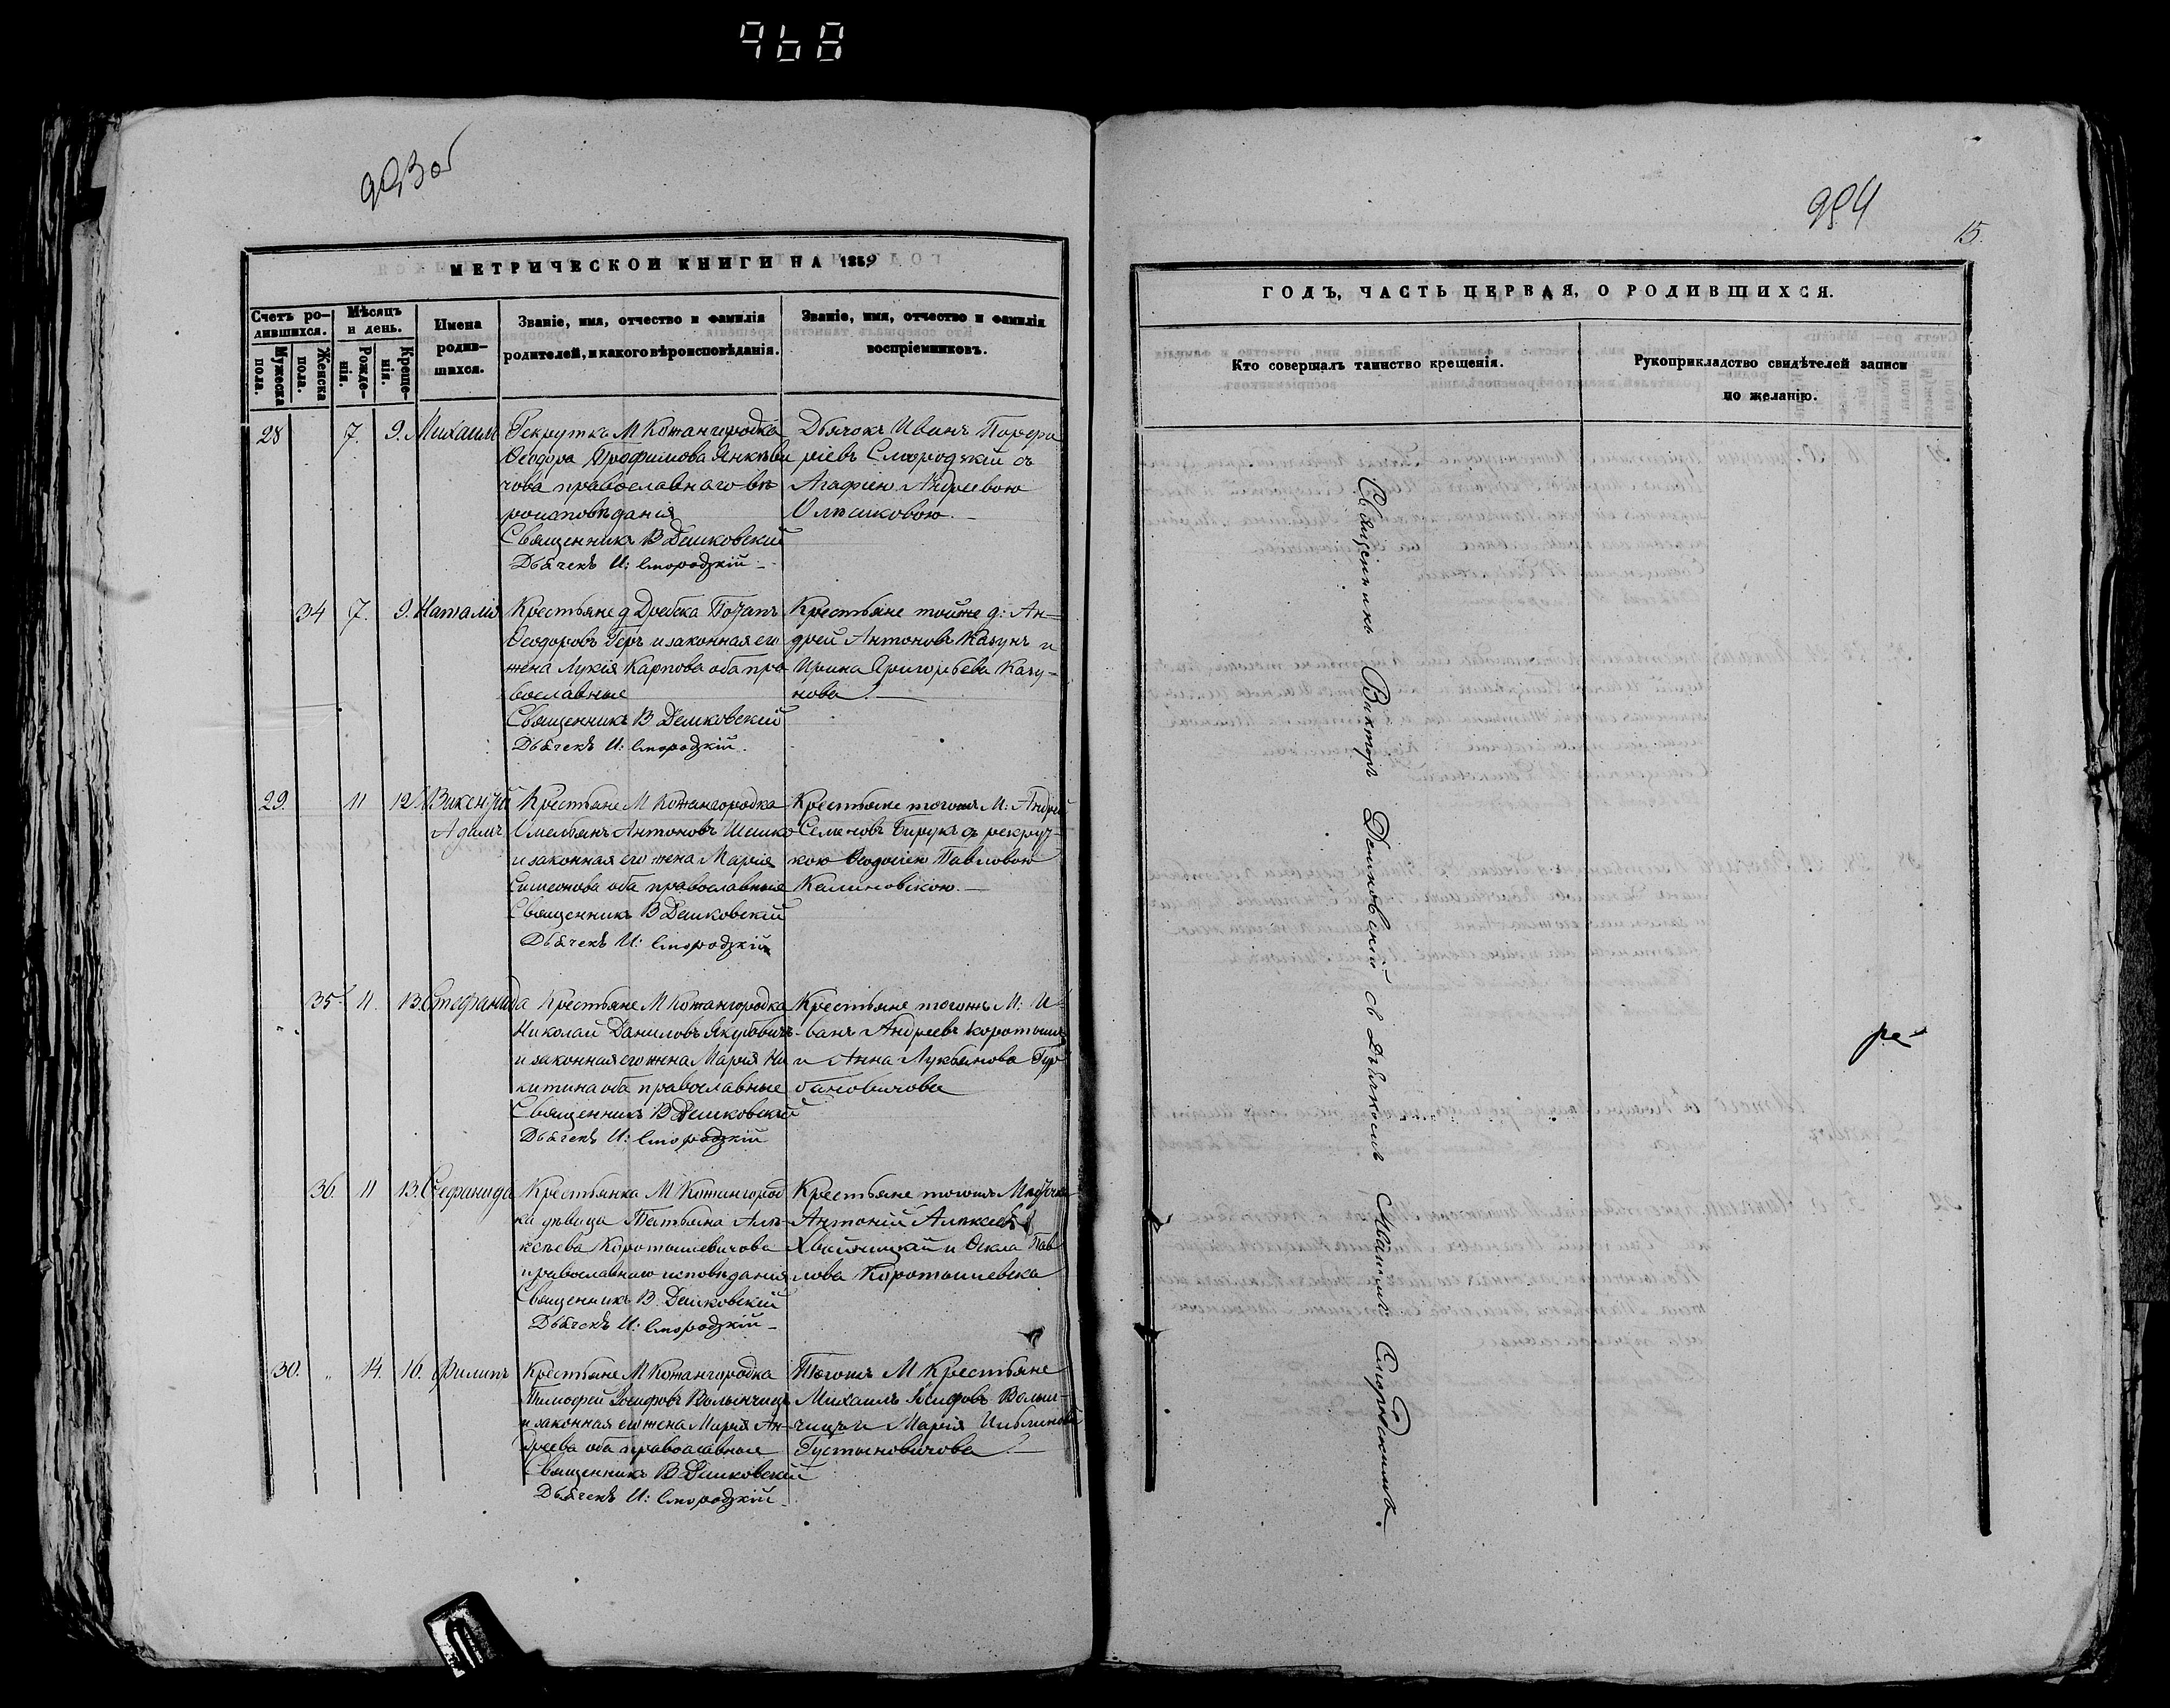 968
993 об
МЕТРИЧЕСКОЙ КНИГИ НА 1859
Счетъ ро-
дившихся.
Мужеска
пола.
Женска
пола.
Мѣсяцъ
и день.
Рожде-
нія.
Креще-
нія.
Имена
родив-
шихся.
Званіе, имя, отчество и фамилія
родителей, и какого вѣроисповѣданія.
Званіе, имя, отчество и фамилія
воспріемниковъ.
28 7. 9. Михаилъ
Рекрутка М Кожангородка
Ѳеодора Трофимова Янкеви
чова православнаго вѣ
роисповѣданія
Священникъ В Дешковскій
Дьячекъ И: Смородзкій
Дьячокъ Иванъ Порфи
ріевъ Смородзкій съ
Агафіею Андреевою
34 7. 9. Наталія
Крестьяне д Дребска Потапъ
Ѳеодоровъ Геръ и законная его
жена Лукія Карпова оба пра
вославные
Священникъ В Дешковскій
Дьячекъ И: Смородзкій.
Крестьяне тойже д: Ан-
дрей Антоновъ Казунъ и
Ирина Григорьева Казу-
нова
29. 11 12 Викентій
Адамъ
Крестьяне М Кожангородка
Емельянъ Антоновъ Шешко
и законная его жена Марія
Симеонова оба православные
Священникъ В Дешковскій
Дьячекъ И: Смородзкій
Крестьяне тогожъ М: Андрей
Семеновъ Бирукъ съ рекрут-
кою Ѳеодосіею Павловою
Калиновскою.
35 11. 13. Стефанида
Крестьяне М Кожангородка
Николай Даниловъ Якубовичъ
и законная его жена Марія Ни
китина оба православные
Священникъ В Дешковскій
Дьячекъ И: Смородзкій
Крестьяне тогожъ М: И-
ванъ Андреевъ Коротышъ
и Анна Лукьянова Гур
бановичова
36. 11 13. Стефанида
Крестьянка М Кожангород
ка дѣвица Татьяна Але-
ксѣева Коротышевичова
православнаго исповѣданія
Священникъ В. Дешковскій
Дьячекъ И: Смородзкій
Крестьяне тогожъ Мѣстечка
Антоній Алексеевъ
Хвойницкій и Ѳекла Пав
лова Коротышевска
30. " 14. 16. Филипъ
Крестьяне М Кожангородка
Тимофей Іосифовъ Волынчицъ
и законная его жена Марія Ан-
дреева оба православные
Священникъ В Дешковскій
Дьячекъ И: Смородзкій
Тогожъ М Крестьяне
Михаилъ Іосифовъ Волын-
чицъ и Марія Ильинова
Густыновичова
994
15.
ГОДЪ, ЧАСТЬ ПЕРВАЯ, О РОДИВШИХСЯ.
Кто совершалъ таинство крещенія.
Рукоприкладство свидѣтелей записи
по желанію.
Священникъ Викторъ Дешковскій съ дьячкомъ Иваномъ Смородскимъ.